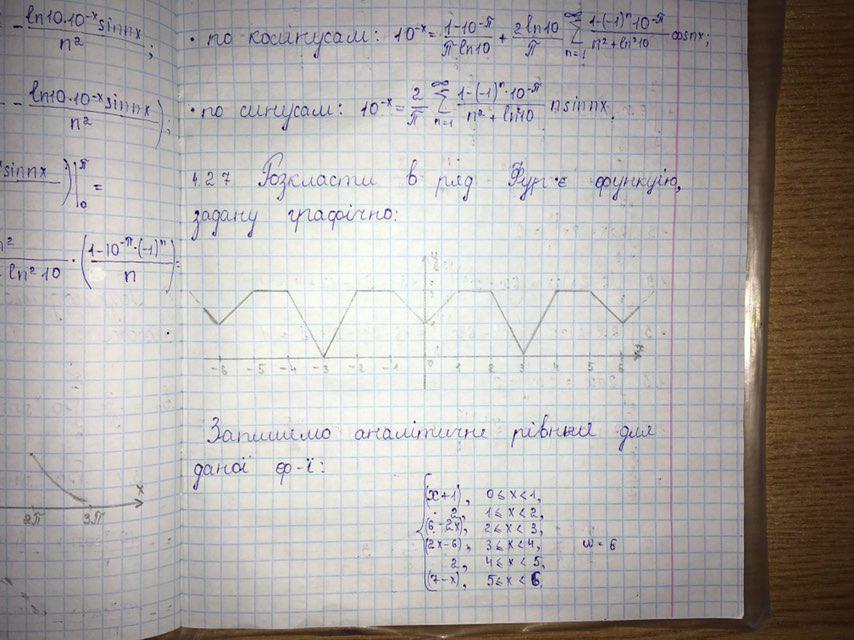 - ln10·10⁻ˣ sinnx / n² ;
- ln10·10⁻ˣ sinnx / n² ) ;
sinnx / ) |₀^π =
n² / ln²10 · ( 1-10^-π·(-1)ⁿ / n ) =
2π 3π x
• по косінусам: 10⁻ˣ = 1-10^-π / πln10 + 2ln10 / π ∑ₙ₌₁^∞ 1-(-1)ⁿ10^-π / n²+ln²10 cosnx;
• по синусам: 10⁻ˣ = 2/π ∑ₙ₌₁^∞ 1-(-1)ⁿ·10^-π / n²+ln²10 nsinnx.
4.27 Розкласти в ряд Фур'є функцію,
задану графічно:
y
-6 -5 -4 -3 -2 -1 0 1 2 3 4 5 6 x
Запишемо аналітичне рівння для
даної ф-ї:
(x+1), 0≤x<1,
2, 1≤x<2,
(6-2x), 2≤x<3,
(2x-6), 3≤x<4, ω=6
2, 4≤x<5,
(7-x), 5≤x<6